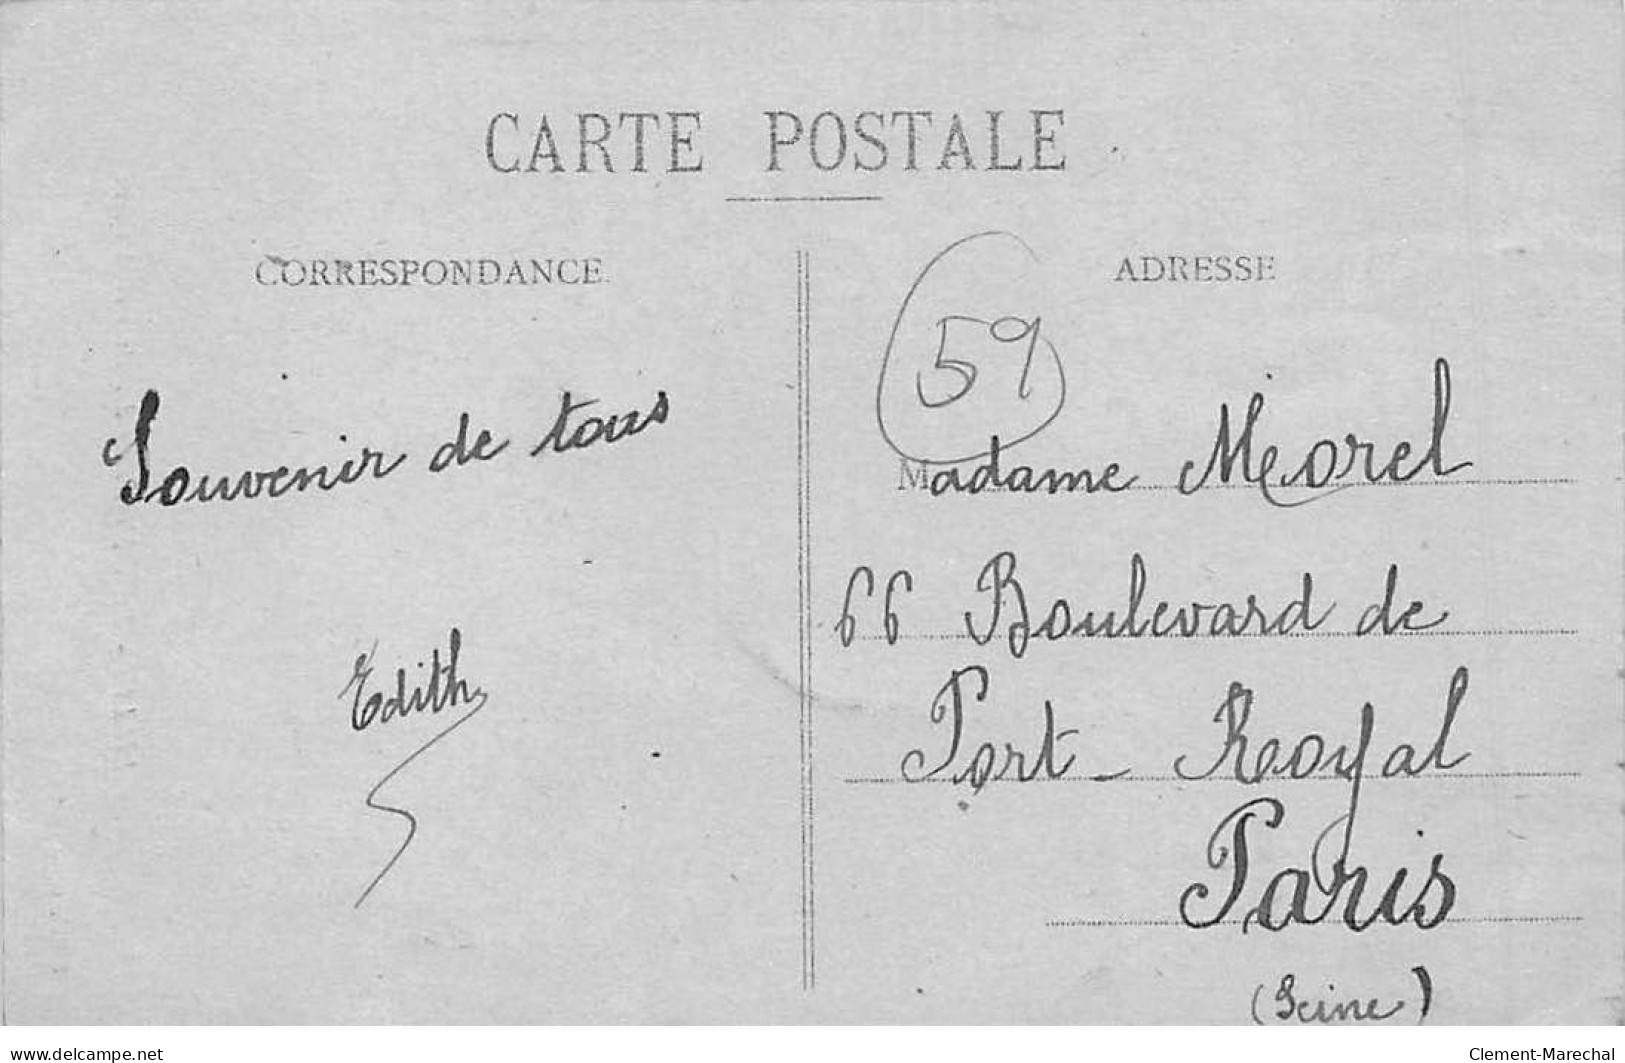 CARTE POSTALE
CORRESPONDANCE
ADRESSE
59
Souvenir de tous
Edith
Madame Morel
66 Boulevard de
Port-Royal
Paris
(Seine)
www.delcampe.net
Clement-Marechal